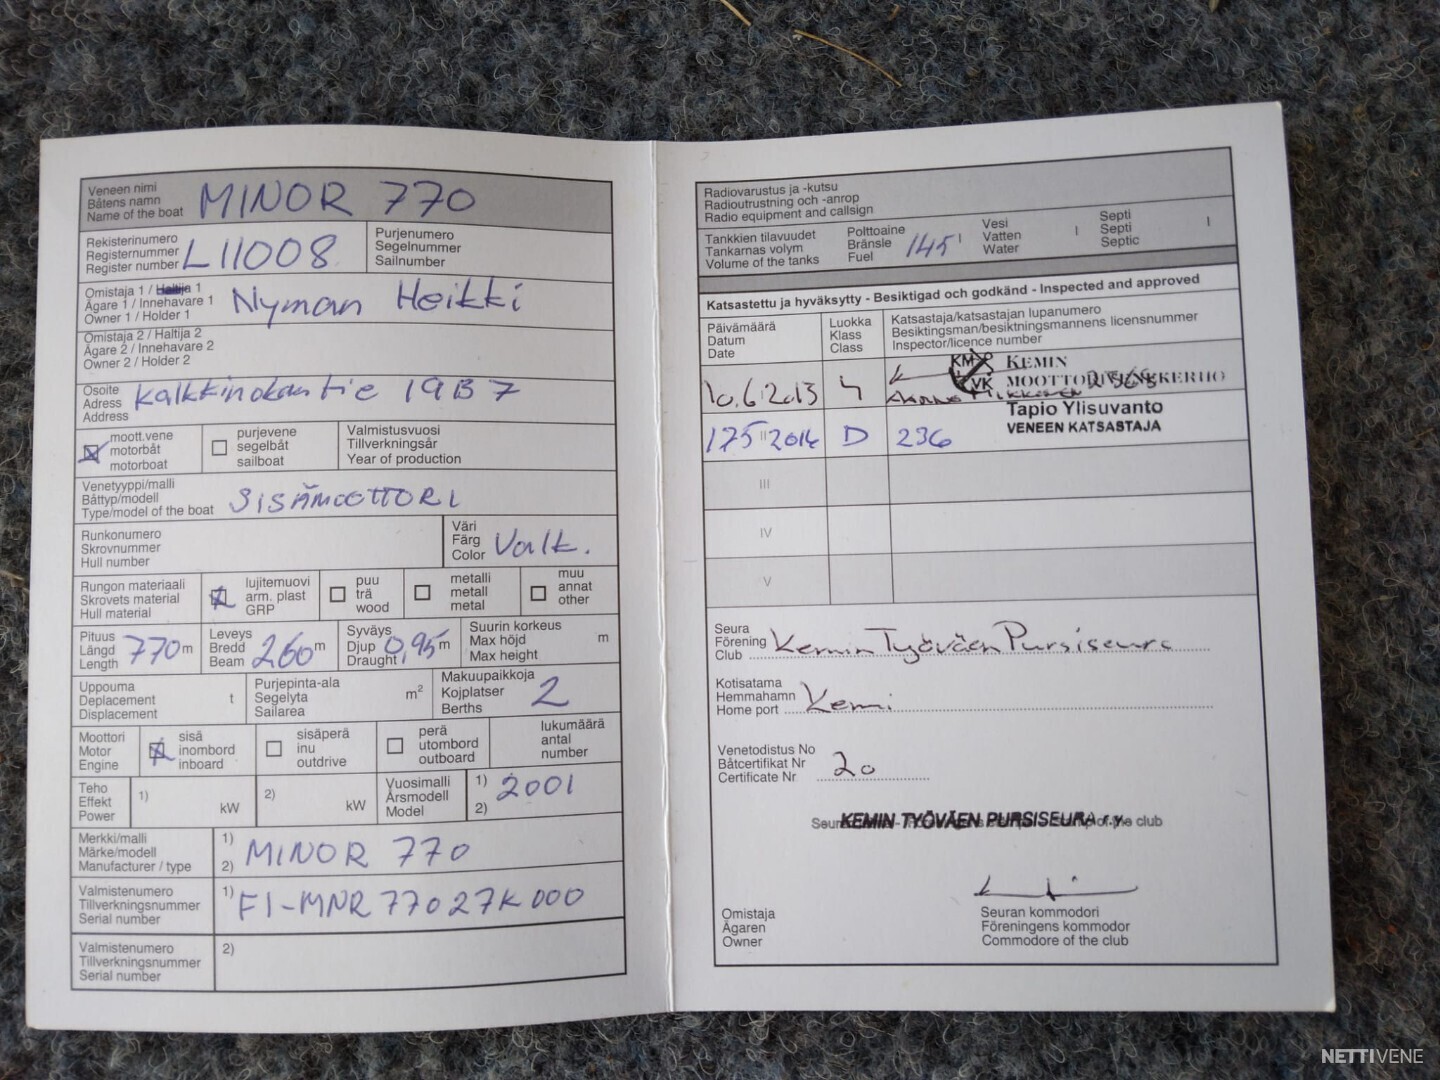 Veneen nimi
Båtens namn
Name of the boat
MINOR 770
Rekisterinumero
Registernummer
Register number
L11008
Purjenumero
Segelnummer
Sailnumber
Omistaja 1 / Haltija 1
Ägare 1 / Innehavare 1
Owner 1 / Holder 1
Nyman Heikki
Omistaja 2 / Haltija 2
Ägare 2 / Innehavare 2
Owner 2 / Holder 2
Osoite
Adress
Address
Kalkkinokantie 19B7
moott.vene
motorbåt
motorboat
purjevene
segelbåt
sailboat
Valmistusvuosi
Tillverkningsår
Year of production
Venetyyppi/malli
Båttyp/modell
Type/model of the boat
SISÄMOOTTORI
Runkonumero
Skrovnummer
Hull number
Väri
Färg
Color
Valk.
Rungon materiaali
Skrovets material
Hull material
lujitemuovi
arm. plast
GRP
puu
trä
wood
metalli
metall
metal
muu
annat
other
Pituus
Längd
Length
770 m
Leveys
Bredd
Beam
260 m
Syväys
Djup
Draught
0,95 m
Suurin korkeus
Max höjd
Max height
m
Uppouma
Deplacement
Displacement
t
Purjepinta-ala
Segelyta
Sailarea
m²
Makuupaikkoja
Kojplatser
Berths
2
Moottori
Motor
Engine
sisä
inombord
inboard
sisäperä
inu
outdrive
perä
utombord
outboard
lukumäärä
antal
number
Teho
Effekt
Power
1) kW
2) kW
Vuosimalli
Årsmodell
Model
1) 2001
2)
Merkki/malli
Märke/modell
Manufacturer / type
1)
2)
MINOR 770
Valmistenumero
Tillverkningsnummer
Serial number
1) FI-MNR77027K000
Valmistenumero
Tillverkningsnummer
Serial number
2)
Radiovarustus ja -kutsu
Radioutrustning och -anrop
Radio equipment and callsign
Tankkien tilavuudet
Tankarnas volym
Volume of the tanks
Polttoaine
Bränsle
Fuel
145 l
Vesi
Vatten
Water
l
Septi
Septi
Septic
l
Katsastettu ja hyväksytty - Besiktigad och godkänd - Inspected and approved
Päivämäärä
Datum
Date
Luokka
Klass
Class
Katsastaja/katsastajan lupanumero
Besiktingsman/besiktningsmannens licensnummer
Inspector/licence number
10.6.2013
4
KM
VK
KEMIN
MOOTTORIVENEKERHO
17 5 II 2014
D
236
Tapio Ylisuvanto
VENEEN KATSASTAJA
III
IV
V
Seura
Förening
Club
Kemin Työväen Pursiseura
Kotisatama
Hemmahamn
Home port
Kemi
Venetodistus No
Båtcertifikat Nr
Certificate Nr
20
KEMIN TYÖVÄEN PURSISEURA r.y.
of the club
Omistaja
Ägaren
Owner
Seuran kommodori
Föreningens kommodor
Commodore of the club
NETTIVENE